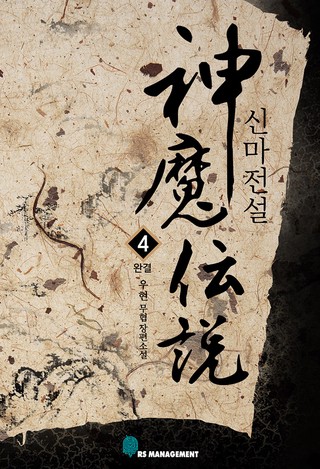 神魔伝説
신마전설
4
완결
우현 무협 장편소설
RS MANAGEMENT